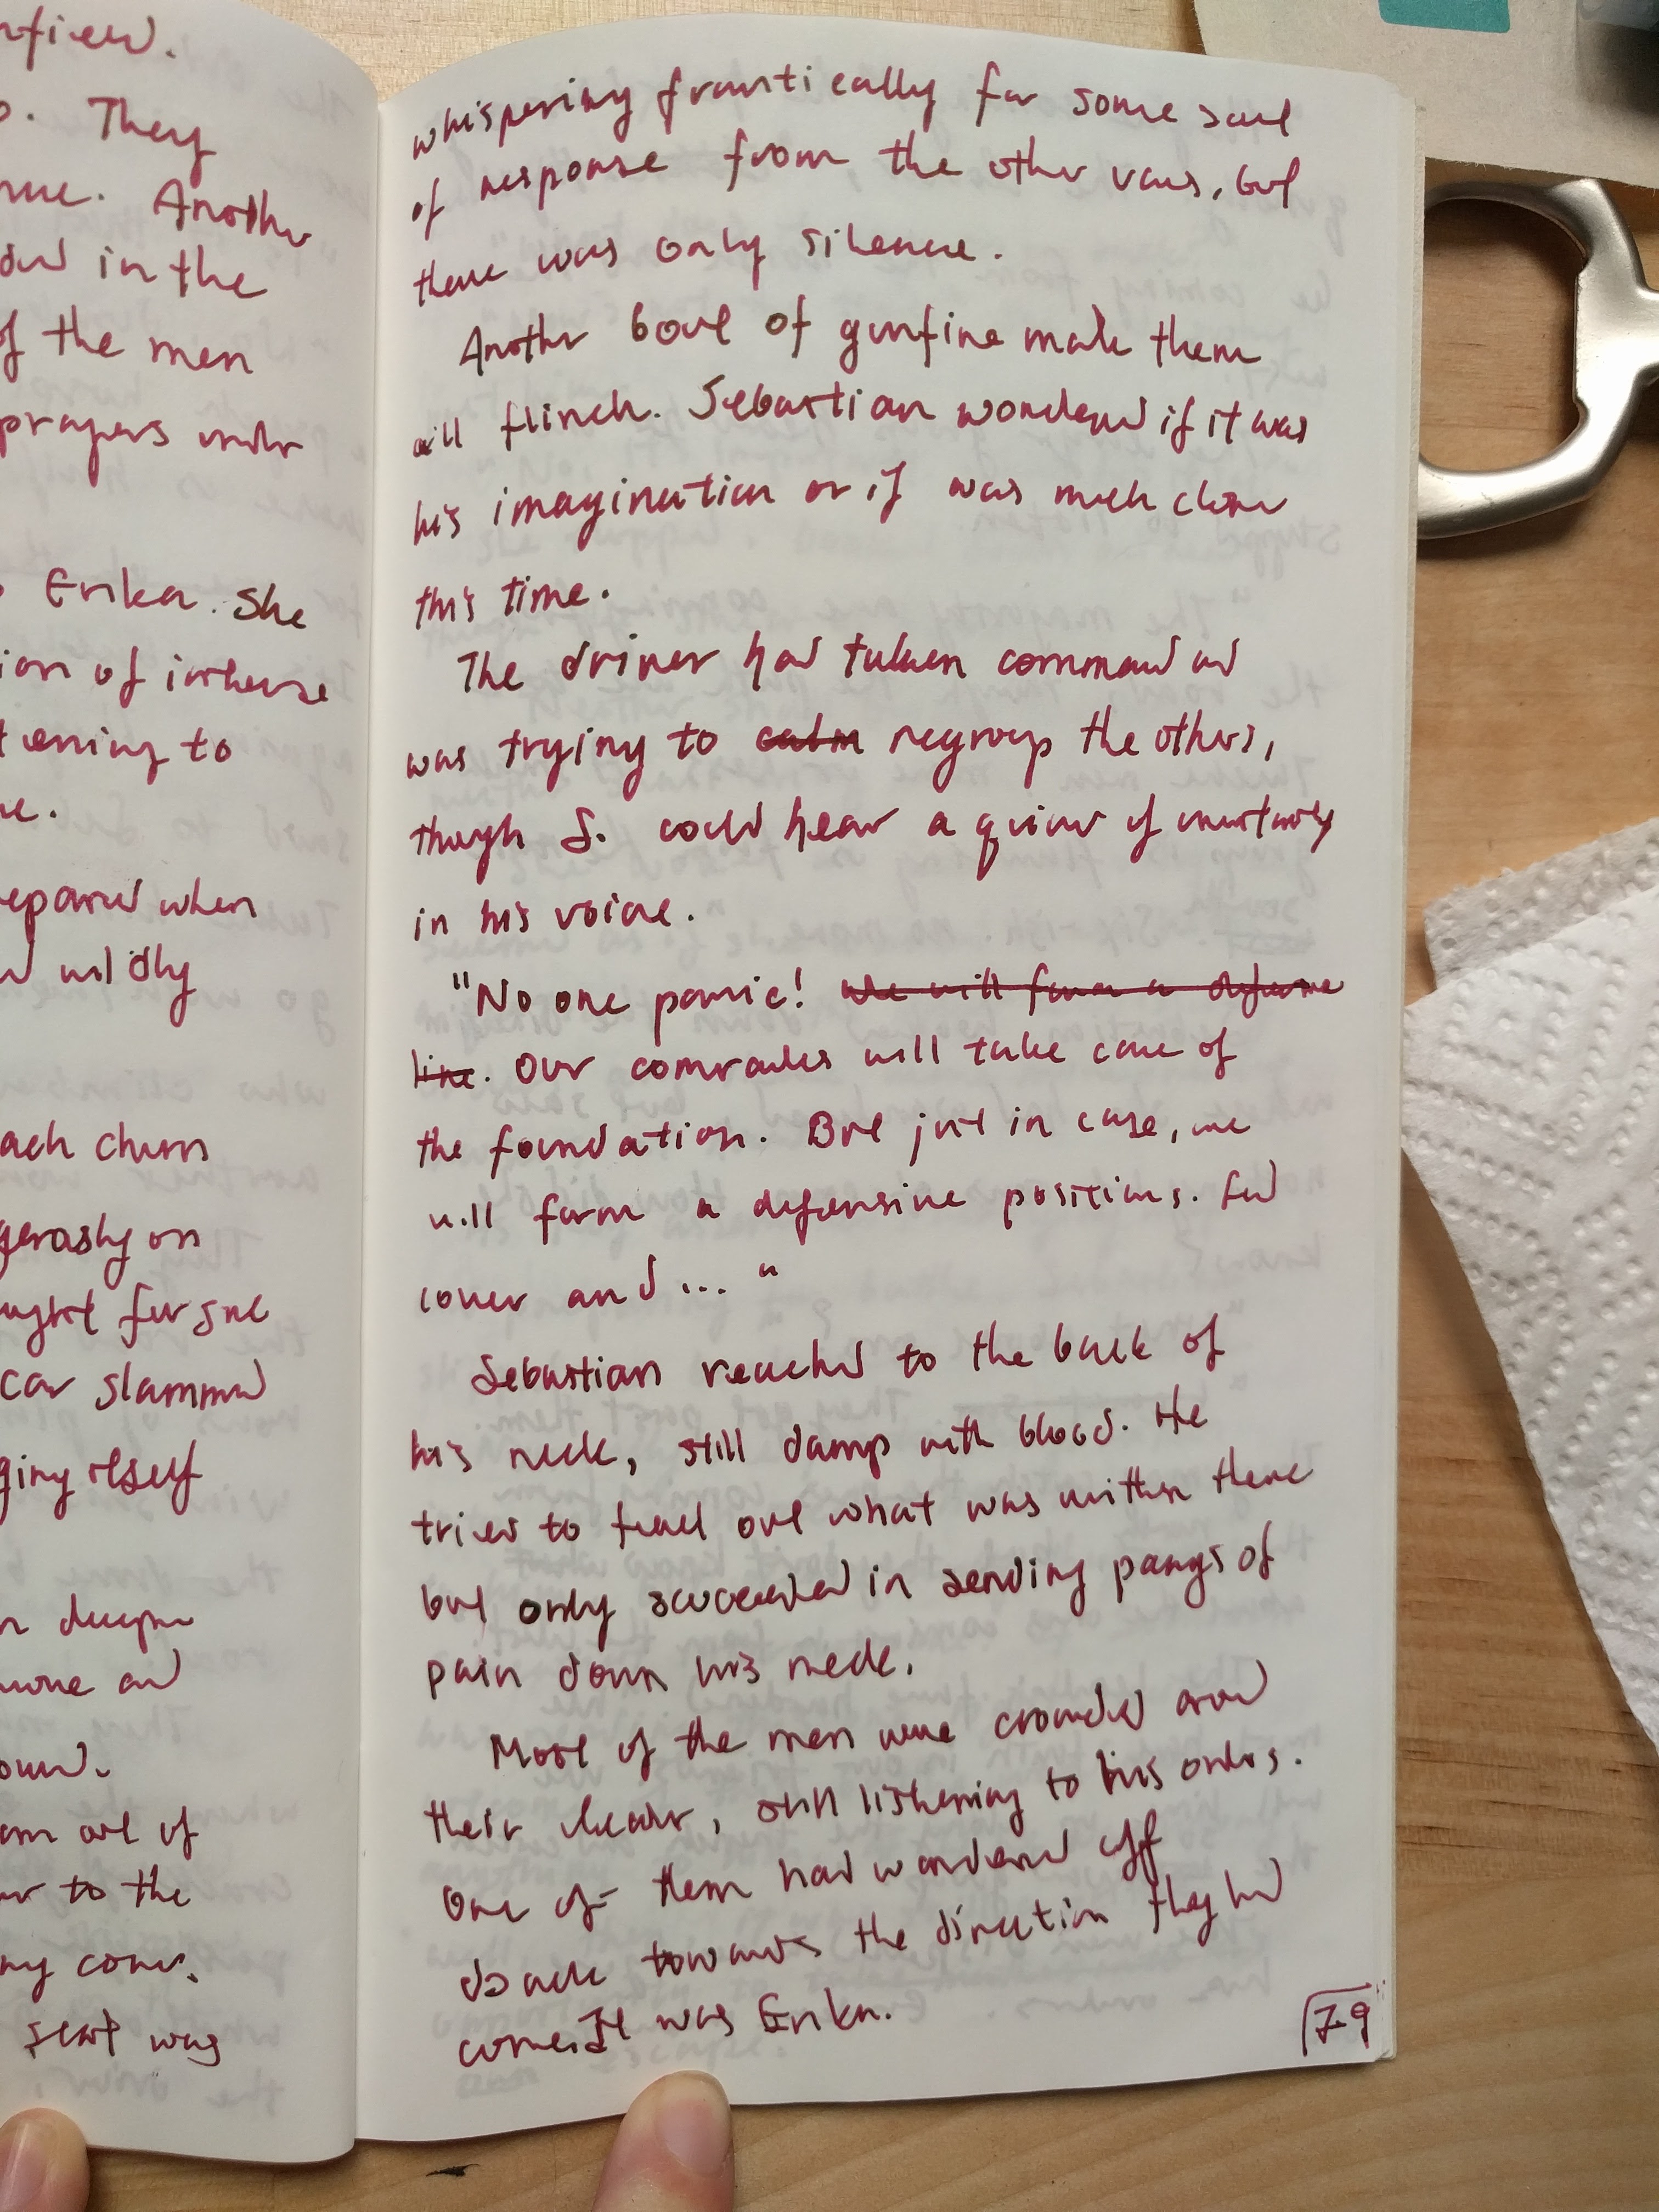 nfiew.
They
me. Another
in the
of the men
prayers under
Erika. She
ion of intense
tening to
epared when
wildly
ach churn
gerously on
ught for
car slammed
ging itself
deeper
own.
out of
to the
seat was
whispering frantically for some sort
of response from the other vans, but
there was only silence.
Another bout of gunfire made them
all flinch. Sebastian wondered if it was
his imagination or if was much closer
this time.
The driver had taken command and
was trying to calm regroup the others,
though S. could hear a quiver of uncertainty
in his voice.
"No one panic! We will form a defense
line. Our comrades will take care of
the foundation. But just in case, we
will form a defensive positions.
cover and ... "
Sebastian reached to the back of
his neck, still damp with blood. He
tried to feel out what was written there
but only succeeded in sending pangs of
pain down his neck.
Most of the men were crowded around
their leader, still listening to his orders.
One of them had wandered off
back towards the direction they had
come. It was Erika.
79